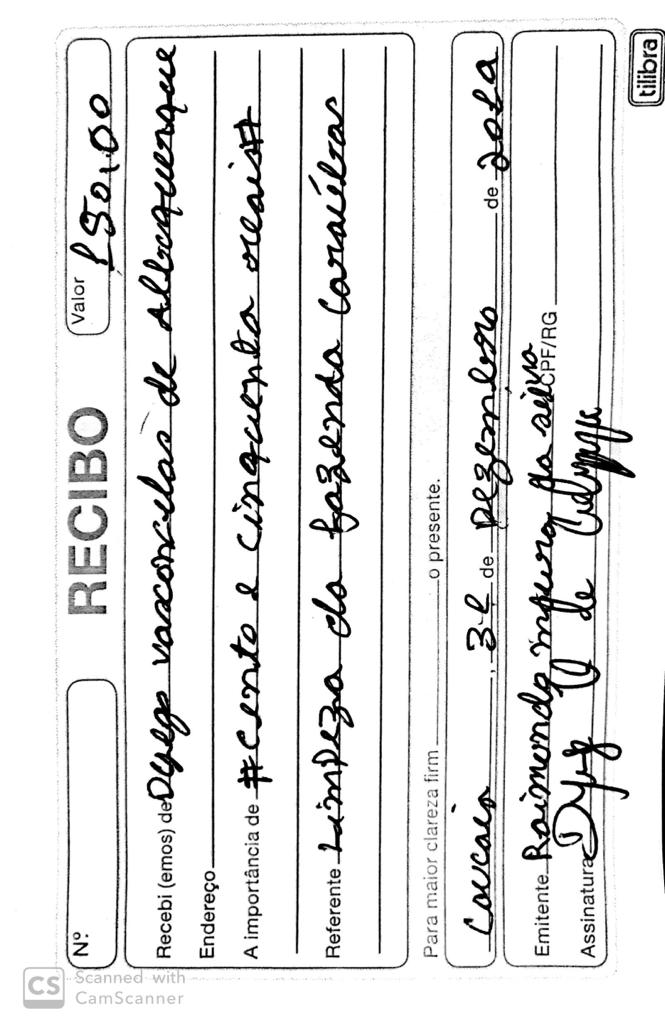 Nº
RECIBO
Valor 150,00
Recebi (emos) de Dyego vasconcelos de Albuquerque
Endereço
A importância de # cento e cinquenta reais #
Referente Limpeza da fazenda Caraúbas
Para maior clareza firm o presente.
Caucaia, 31 de Dezembro de
Emitente Raimundo moura da silva CPF/RG
Assinatura Dyego V de
tilibra
CS Scanned with
CamScanner